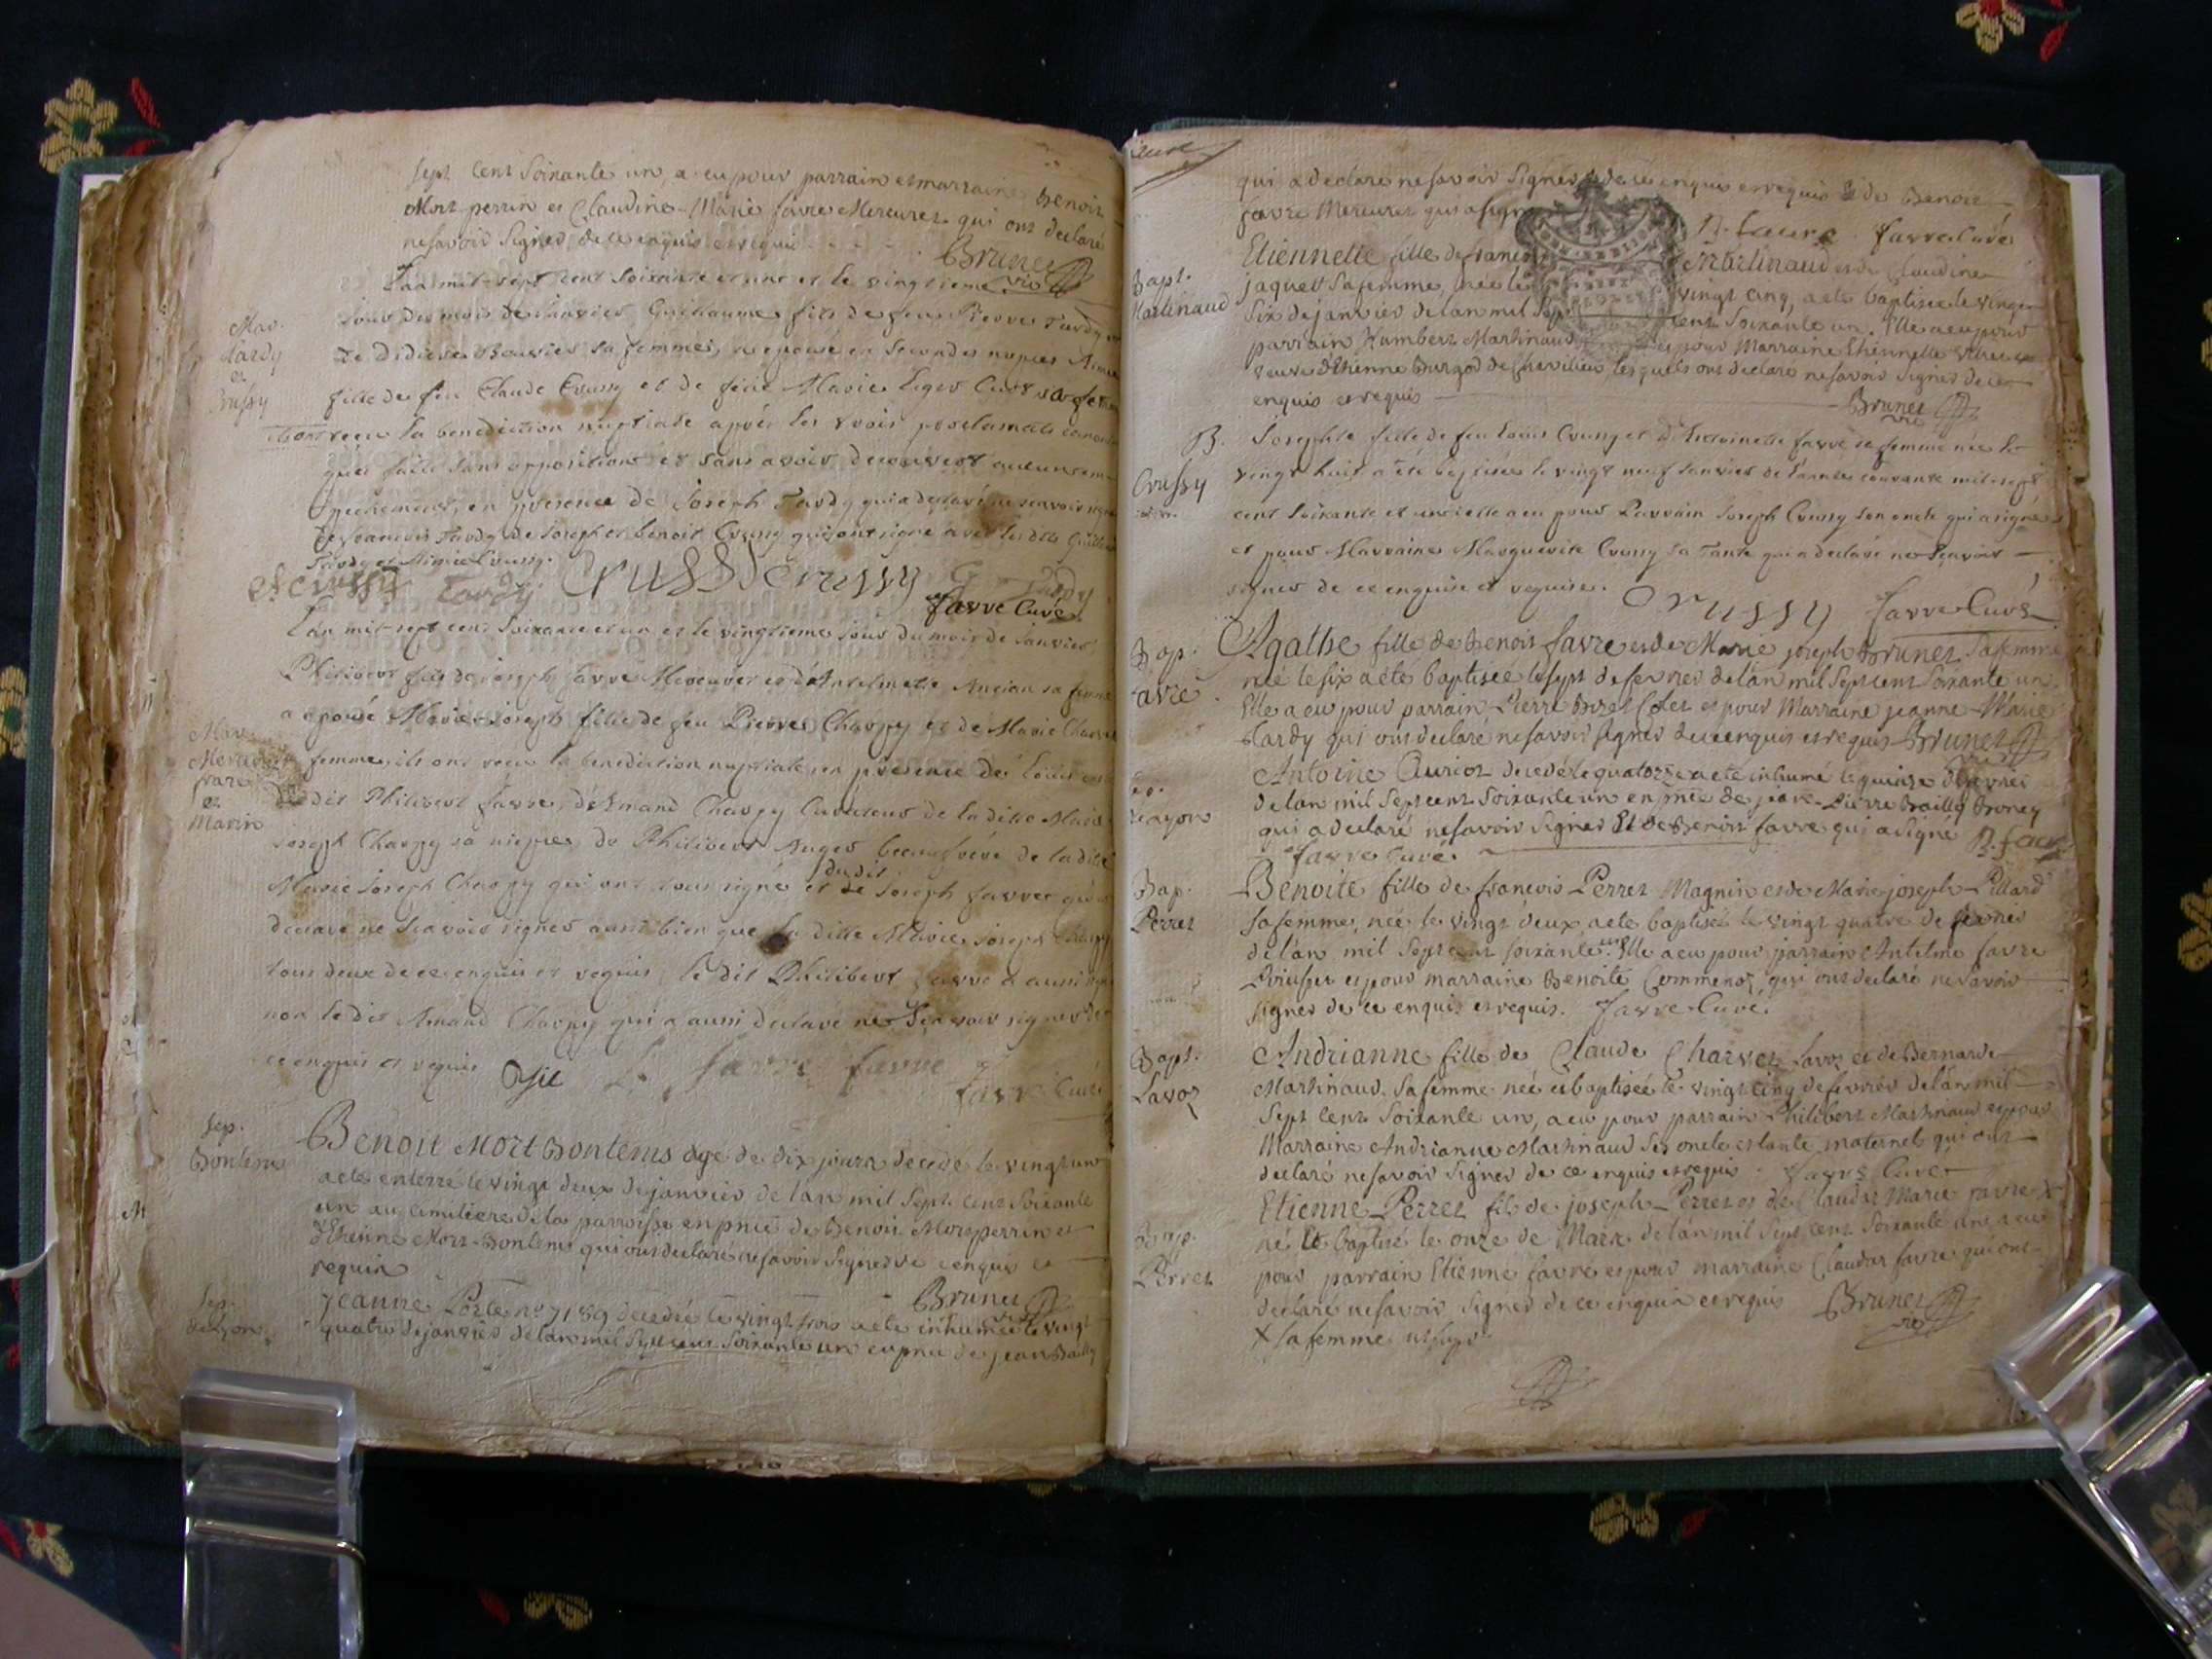 sept cent soixante un, a eu pour parrain et marraine Benoit
Mort-perrin et Claudine-Marie favre Mercurer qui ont declaré
ne savoir signer, de ce enquis et requis
Brunet vic
L'an mil-sept cent soixante et une et le vingtieme
jour du mois de janvier Guillaume fils de feu Pierre Tardy
de Didiere sa femme, a epousé en secondes nupces Aimée
fille de feu Claude Crussy et de feüe Marie Leger
Mar.
Tardy
et
Crussy
reçu la benediction nuptiale après les trois proclamats
ques faits sans opposition et sans avoir decouvert aucun em-
pechement, en presence de Joseph Tardy qui a declaré ne scavoir signer
de francois Tardy de Joseph et Benoit Crussy qui ont signé avec les dits
Tardy et Aimée Crussy.
Crussy Tardy Crussy Crussy G Tardy
favre Curé
L'an mil-sept cent soixante et un et le vingtieme jour du mois de janvier
Philibert fils de joseph favre Mercurer et d'Antelmette Ancian sa femme
a epousé Marie-joseph fille de feu Pierre Charpy et de Marie
femme, ils ont reçu la benediction nuptiale en présence de Louis
du dit Philibert favre, d'Amand Charpy Curateur de la dite Marie
joseph Charpy sa niepce, de Philibert Auger beaufrére de la dite
Marie Joseph Charpy qui ont tous signé et de du dit Joseph favre qui a
declaré ne scavoir signer aussi bien que la ditte Marie joseph Charpy
tous deux de ce enquis et requis, le dit Philibert favre a aussi signé
non le dit Amand Charpy qui a aussi declaré ne scavoir signer de
ce enquis et requis
favre favre
favre Curé
Mar.
Mercurer
favre
et
Sep.
Bontems
Benoit Mort Bontems agé de dix jours decedé le vingt un
a eté enterré le vingt deux de janvier de l'an mil sept cent soixante
un au cimetiere de la parroisse en pnce de Benoit Mortperrin et
d'Etienne Mort-Bontems qui ont declaré ne savoir signer de ce enquis et
requis
Brunet vic
Sep.
de Lyon
Jeanne Porte no 7189 decedée le vingt trois a eté inhumée le vingt
quatre de janvier de l'an mil sept cent soixante un en pnce de jean Bailly
qui a declaré ne savoir signer de ce enquis et requis et de Benoit
favre Mercurer qui a signé
B. favre favre Curé
Bapt.
Martinaud
Etiennette fille de francois Martinaud et de Claudine
jaquet sa femme, née le vingt cinq, a eté baptisée le vingt
six de janvier de l'an mil sept cent soixante un. Elle a eu pour
parrain Humbert Martinaud et pour Marraine Etiennette
veuve d'Etienne Burgod de chevilieu, lesquels ont declaré ne savoir signer de ce
enquis et requis
Brunet vic
B.
Crussy
Josephte fille de feu Louis Crussy et d'Antoinette favre sa femme née le
vingt huit a été baptisée le vingt neuf janvier de l'année courante mil-sept
cent soixante et un, elle a eu pour Parrain Joseph Crussy son oncle qui a signé
et pour Marraine Marguerite Crussy sa tante qui a declaré ne scavoir
signer de ce enquise et requise.
Crussy favre Curé
Bap.
favre
Agathe fille de Benoit favre et de Marie joseph Brunet sa femme
née le six a été baptisée le sept de fevrier de l'an mil sept cent soixante un.
Elle a eu pour parrain Pierre Colet et pour Marraine jeanne-Marie
Tardy qui ont declaré ne savoir signer de ce enquis et requis Brunet vic
Antoine Curioz decedé le quatorze a eté inhumé le quinze de fevrier
de l'an mil sept cent soixante un en pnce de jean-Pierre Bailly
qui a declaré ne savoir signer Et de Benoit favre qui a signé B. favre
favre Curé.
Bap.
Perret
Benoite fille de francois Perret Magnin et de Marie-joseph Pillard
sa femme, née le vingt deux a eté baptisée le vingt quatre de fevrier
de l'an mil sept cent soixante un. Elle a eu pour parrain Antelme favre
et pour marraine Benoite Commenoz, qui ont declaré ne savoir
signer de ce enquis et requis. favre Curé.
Bapt.
Savoz
Andrianne fille de Claude Charvet Savoz et de Bernarde
Martinaud sa femme née et baptisée le vingt cinq de fevrier de l'an mil
sept cent soixante un, a eu pour parrain Philibert Martinaud et pour
Marraine Andrianne Martinaud ses oncle et tante maternel qui ont
declaré ne savoir signer de ce enquis et requis. favre Curé
Bap.
Perret
Etienne Perret fils de joseph Perret et de Claudaz Marie favre X
né et baptisé le onze de Mars de l'an mil sept cent soixante un a eu
pour parrain Etienne favre et pour marraine Claudaz favre qui ont
declaré ne savoir signer de ce enquis et requis Brunet vic
X sa femme